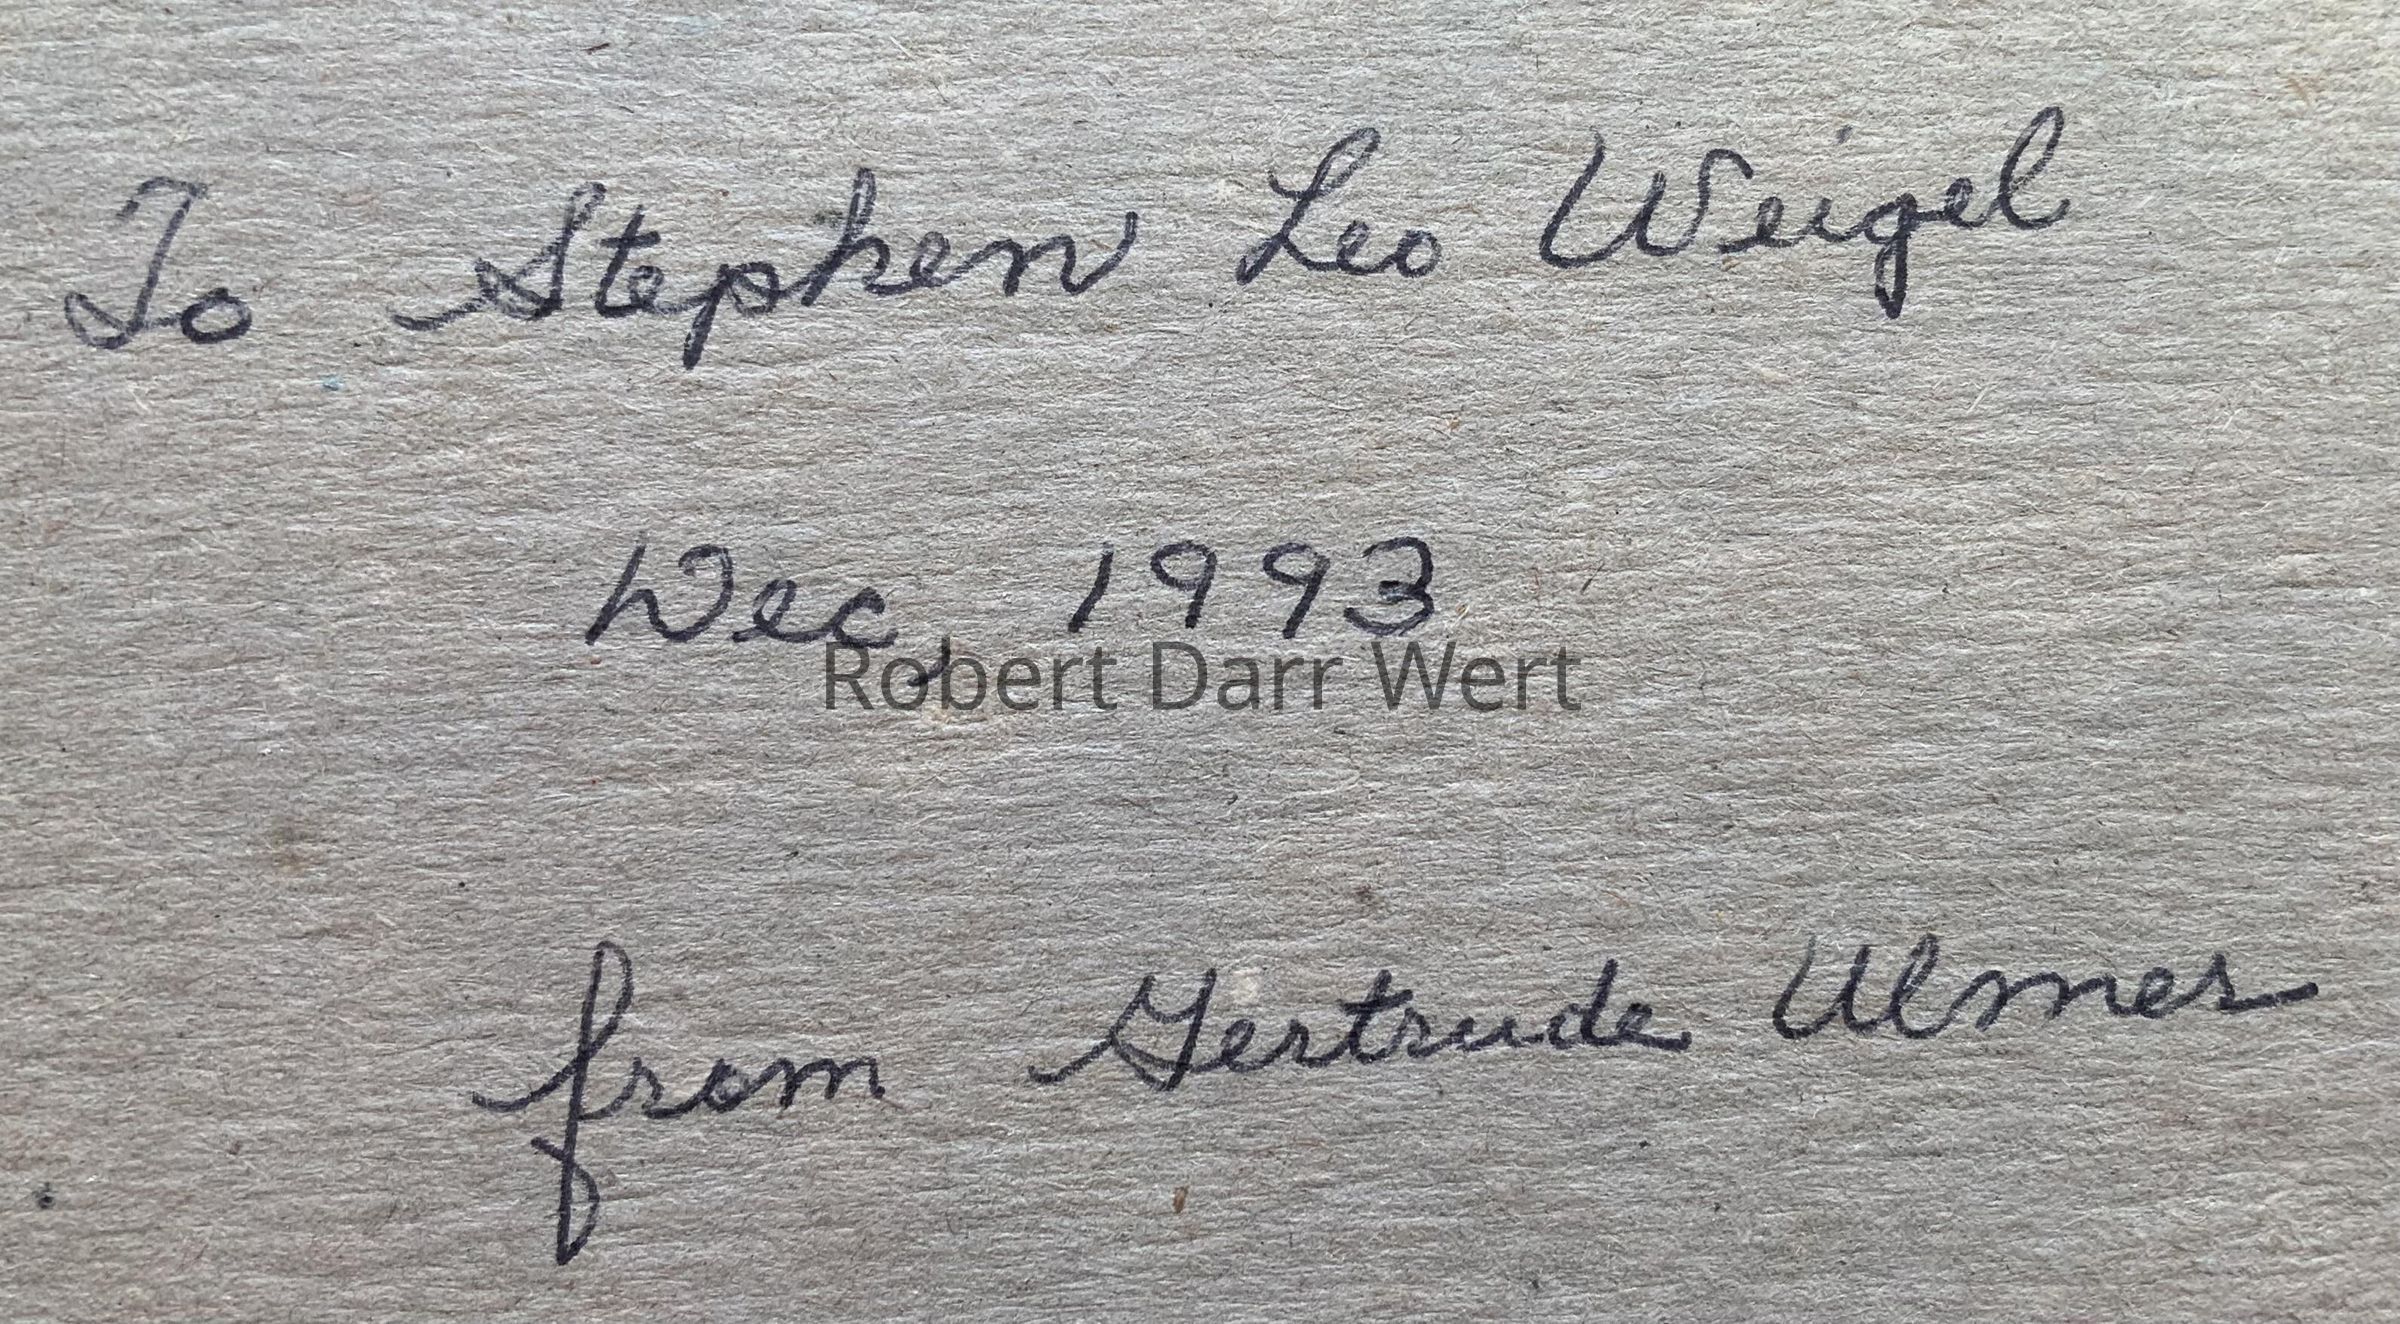 To Stephen Leo Weigel
Dec, 1993
Robert Darr Wert
from Gertrude Ulmer